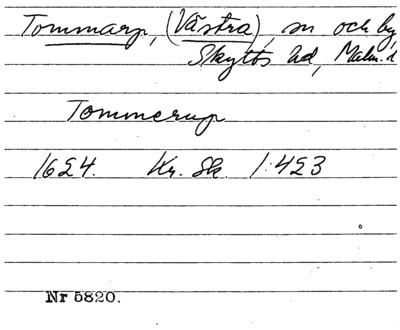 Tommarp, (Västra), sn och by,
Skytts hd, Malm. l.
Tommerup
1624. Kr. Sk. 1:423
Nr 5820.